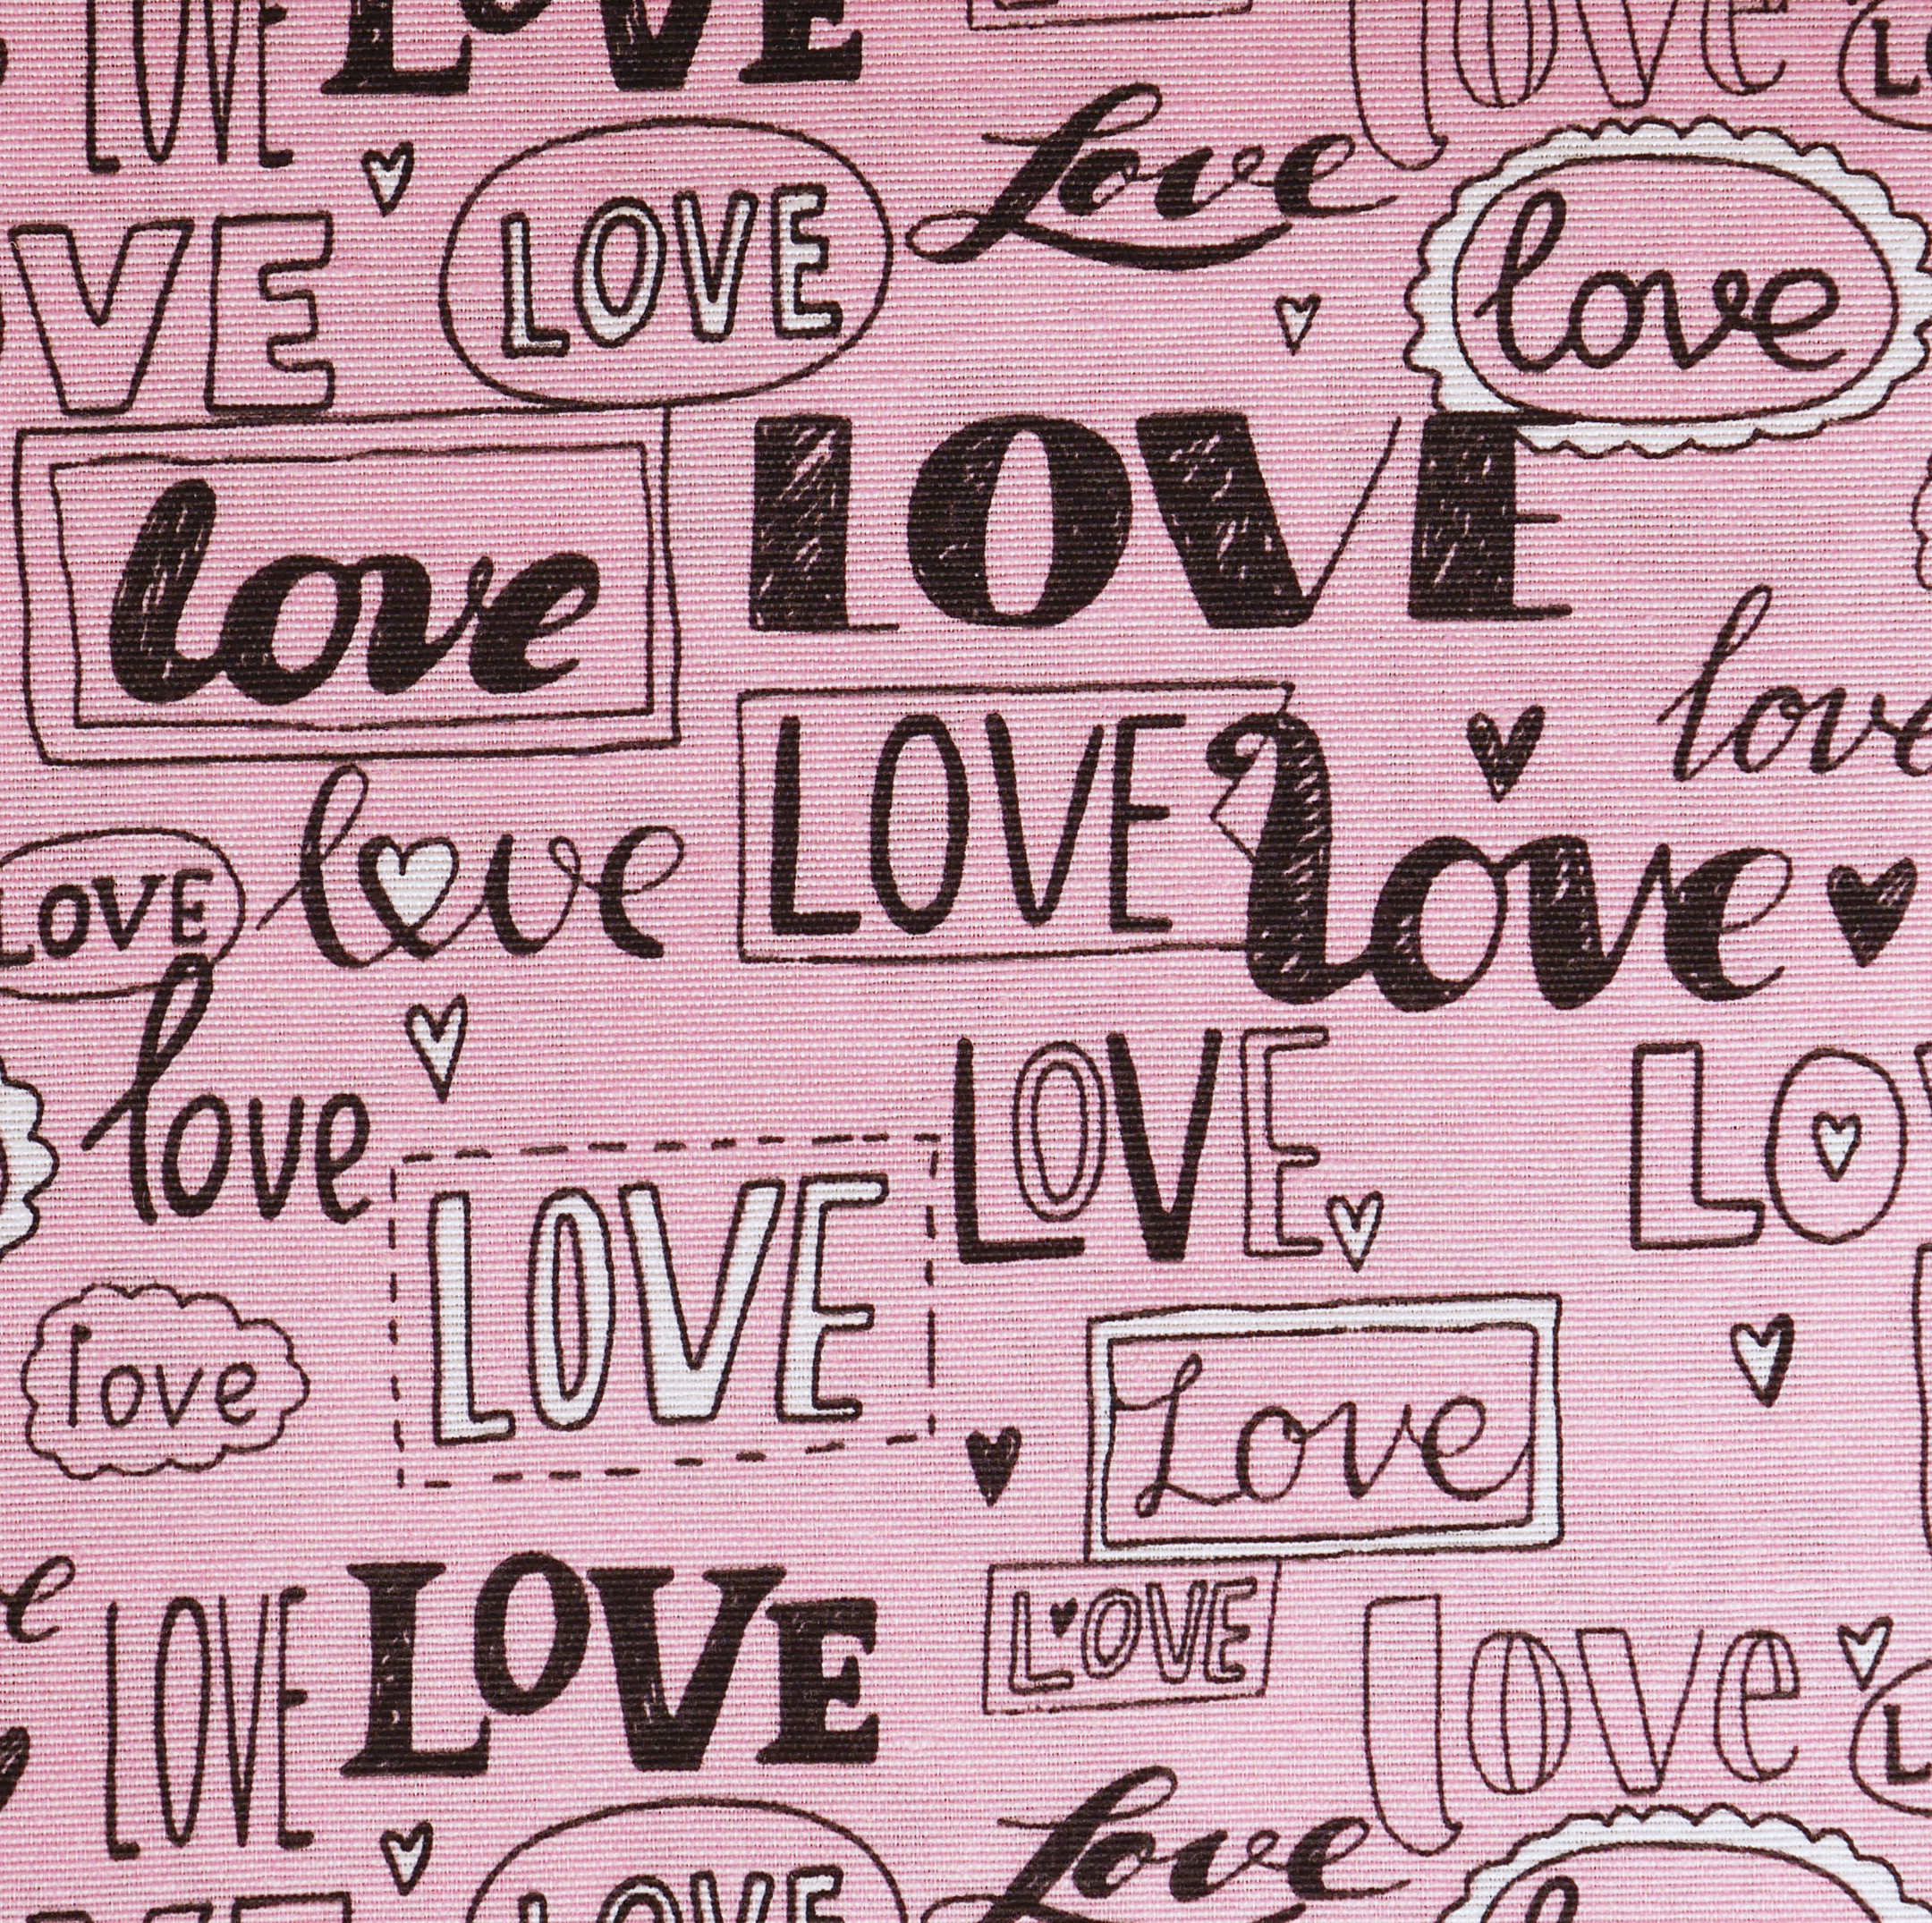 LOVE
LOVE
love
LO
VE
LOVE
Love
love
love
LOVE
love
LOVE
love
LOVE
love
love
LOVE
LO
love
LOVE
love
Love
e
LOVE
LOVE
LOVE
love
L
Love
VE
LOVE